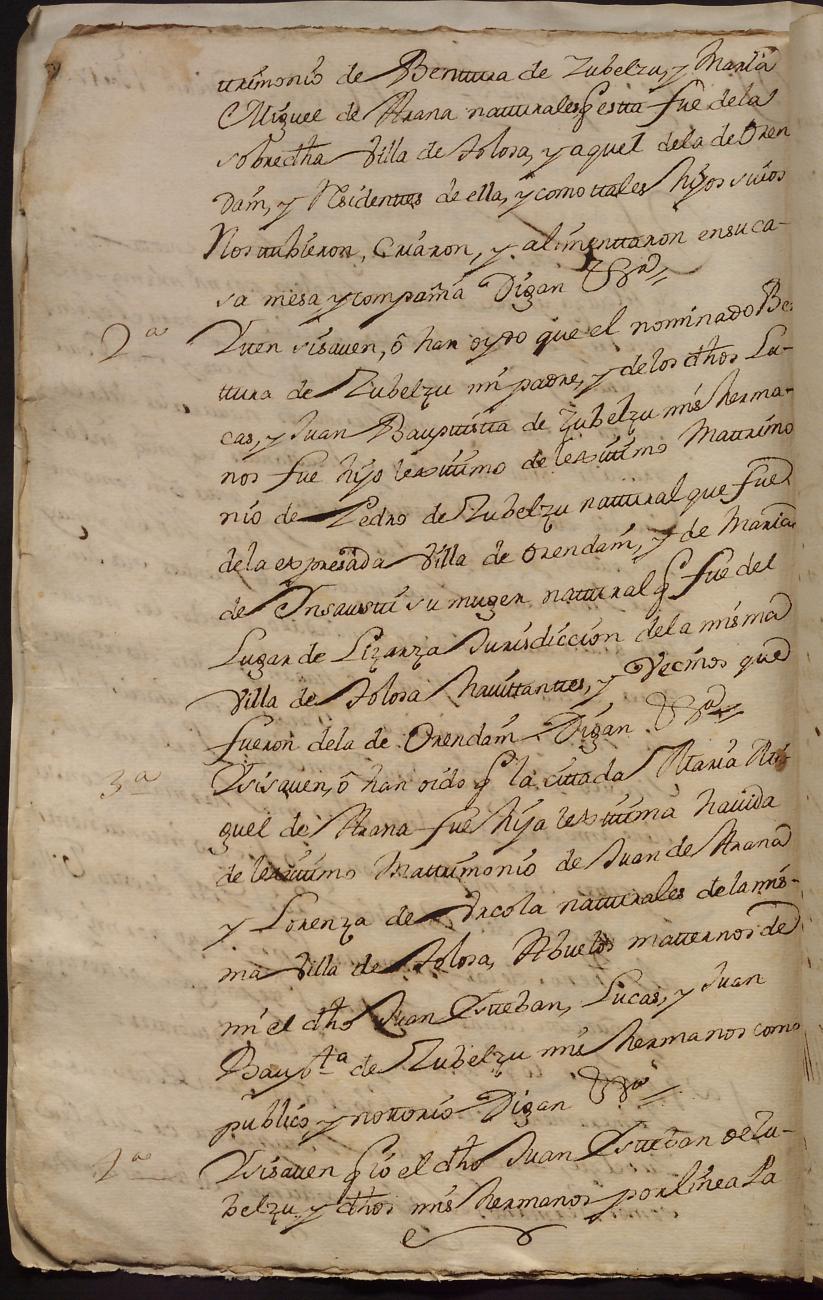 ttrimonio de Benttura de Zubelzu, y Maria
Miguel de Arana natturales q estta fue dela
sobredha Villa de Tolosa, y aquel dela de Oren
dain, y Residenttes de ella, y como ttales hijos suios
Nos ttubieron, Criaron, y alimenttaron en su ca-
sa mesa y compañia Digan &ra
2a Yten si sauen, ó han oydo que el nominado Be
ttura de Zubelzu mi padre, y delos dhos Lu-
cas, y Juan Bapttistta de Zubelzu mis herma-
nos fue hijo lexittimo de lexittimo Mattrimo
nio de Pedro de Zubelzu nattural que fue
dela expresada Villa de Orendain, y de Maria
de Ynsaustti su muger nattural q fue del
Lugar de Lizarza Jurisdiccion dela misma
Villa de Tolosa havittanttes, y Vecinos que
fueron dela de Orendain Digan &ra
3a Ysi sauen, ó han oido q la cittada Maria Mi-
guel de Arana fue hija lexittima hauida
de lexittimo Mattrimonio de Juan de Arana
y Lorenza de Vrcola natturales dela mis-
ma Villa de Tolosa, Abuelos matternos de
mi el dho Juan Estteban, Lucas, y Juan
Baupta de Zubelzu mis hermanos como
publico y nottorio Digan &ra
Ysi sauen q io el dho Juan Estteban de Zu-
belzu, y dhos mis hermanos por linea Pa